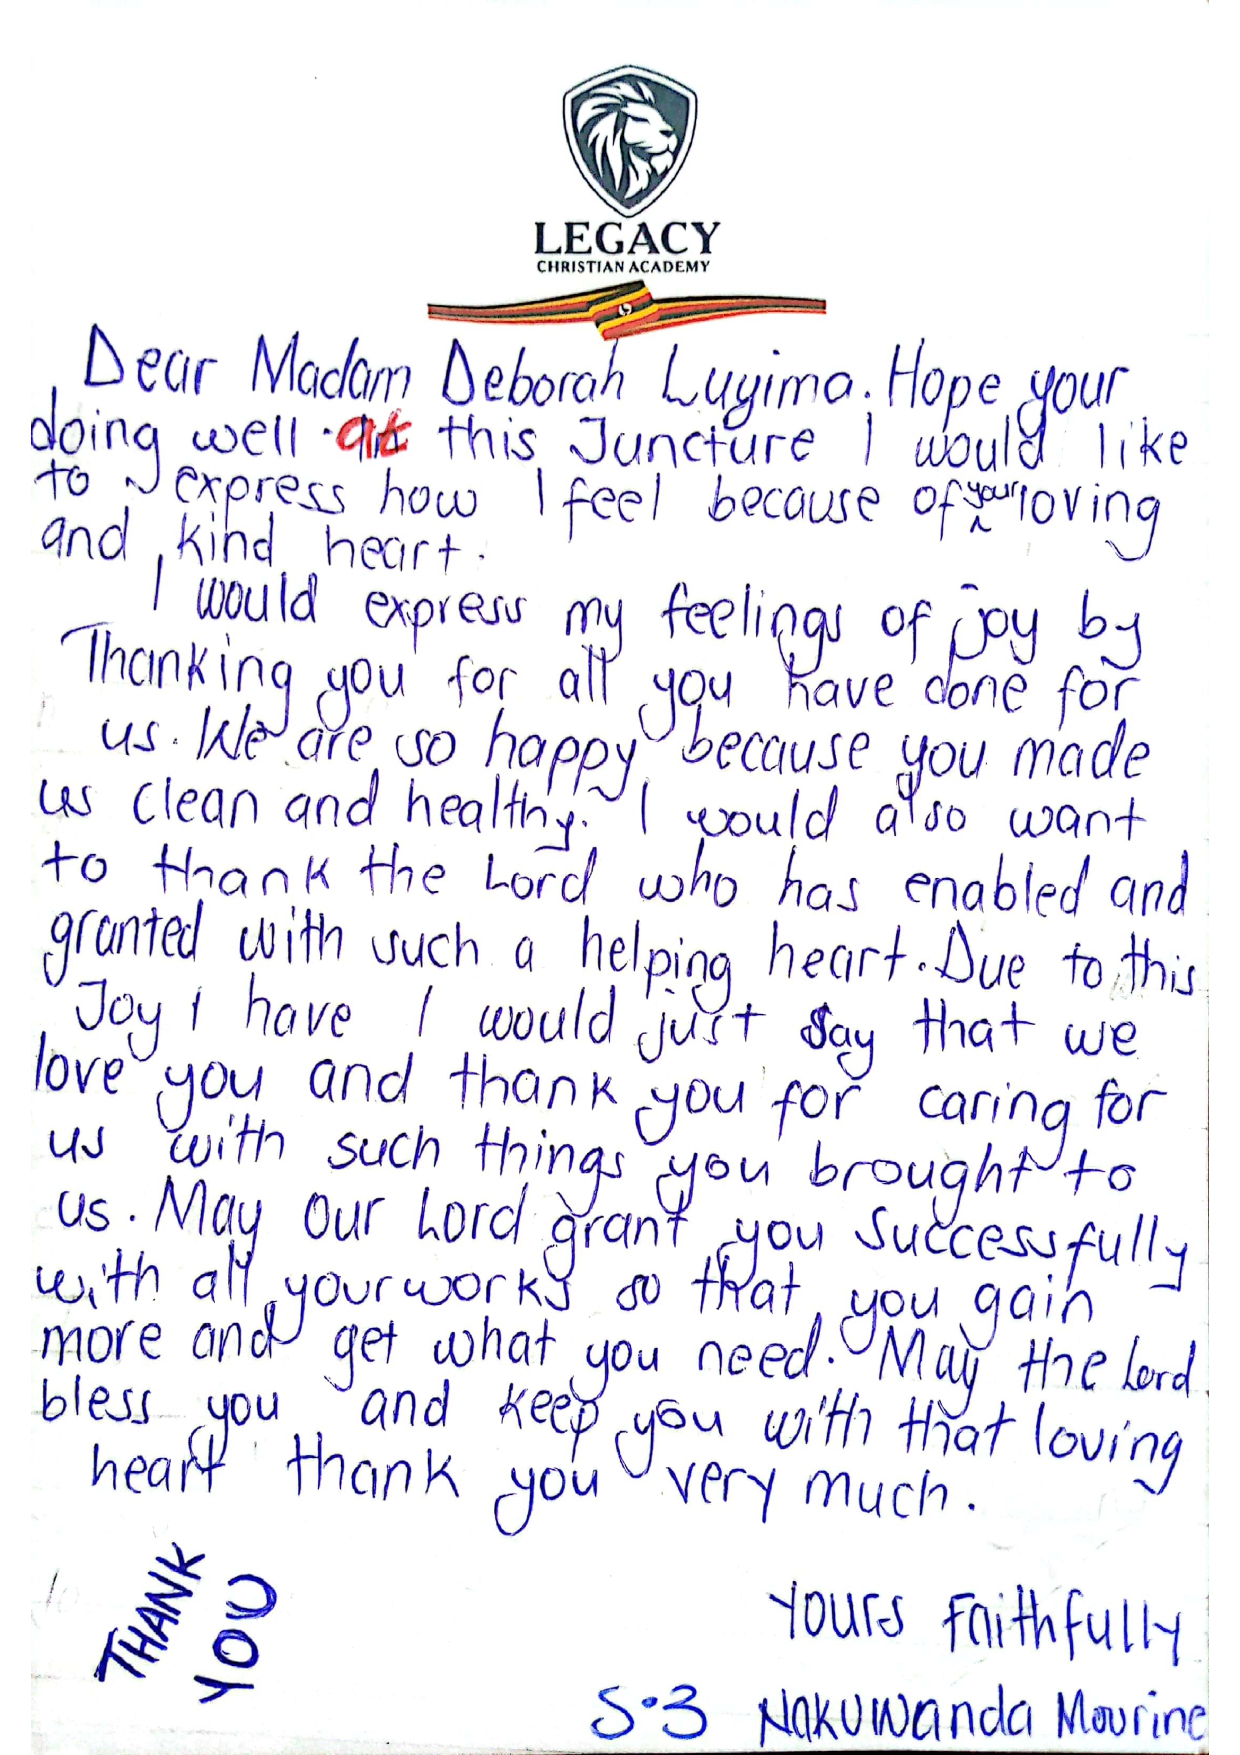 LEGACY
CHRISTIAN ACADEMY
Dear Madam Deborah Luyima. Hope your
doing well. at this Juncture I would like
to express how I feel because of your loving
and kind heart.
I would express my feelings of joy by
Thanking you for all you have done for
us. We are so happy because you made
us clean and healthy. I would also want
to thank the Lord who has enabled and
granted with such a helping heart. Due to this
Joy I have I would just say that we
love you and thank you for caring for
us with such things you brought to
us. May our Lord grant you successfully
with all your works so that you gain
more and get what you need. May the Lord
bless you and keep you with that loving
heart thank you very much.
THANK
YOU
Yours Faithfully
S.3 Nakuwanda Mourine